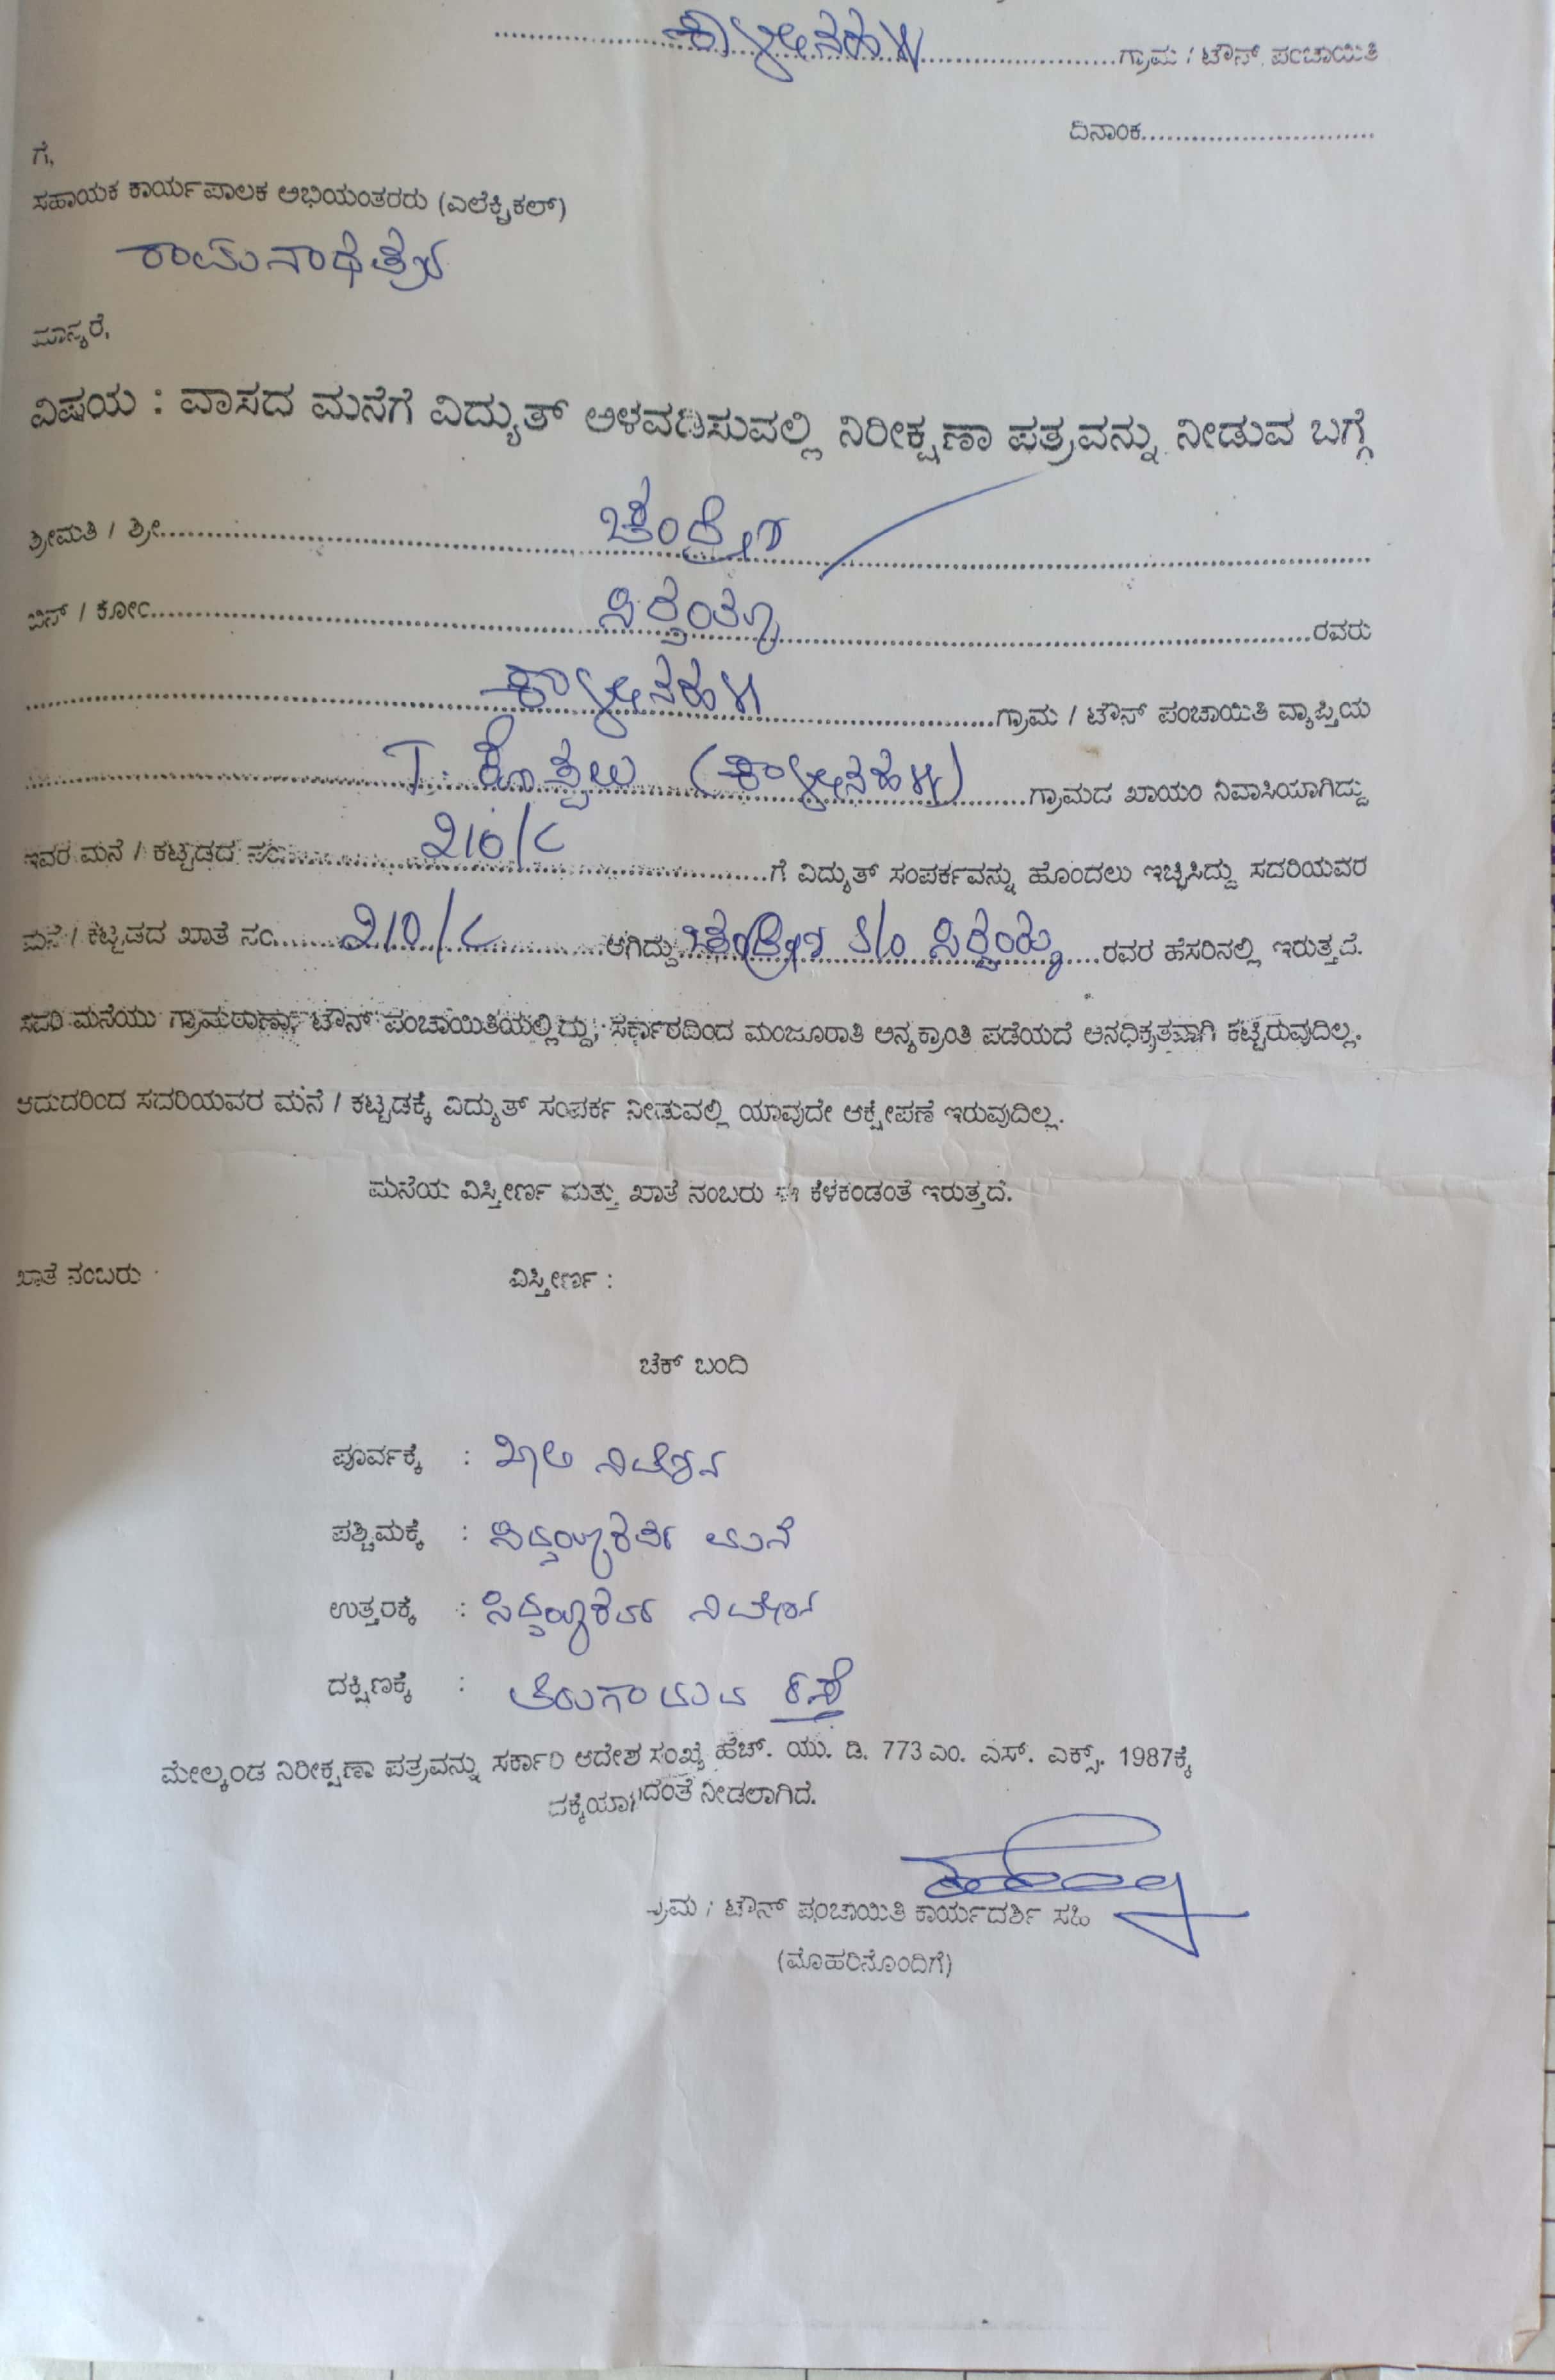 ಕಾಳೇನಹಳ್ಳಿ ಗ್ರಾಮ / ಟೌನ್ ಪಂಚಾಯಿತಿ
ದಿನಾಂಕ
ಗೆ,
ಸಹಾಯಕ ಕಾರ್ಯಪಾಲಕ ಅಭಿಯಂತರರು (ಎಲೆಕ್ಟ್ರಿಕಲ್)
ಮಾನ್ಯರೆ,
ವಿಷಯ : ವಾಸದ ಮನೆಗೆ ವಿದ್ಯುತ್ ಅಳವಡಿಸುವಲ್ಲಿ ನಿರೀಕ್ಷಣಾ ಪತ್ರವನ್ನು ನೀಡುವ ಬಗ್ಗೆ
ಶ್ರೀಮತಿ / ಶ್ರೀ
ಬಿನ್ / ಕೋಂ ರವರು
ಕಾಳೇನಹಳ್ಳಿ ಗ್ರಾಮ / ಟೌನ್ ಪಂಚಾಯಿತಿ ವ್ಯಾಪ್ತಿಯ
T. ಕೊಪ್ಪಲು (ಕಾಳೇನಹಳ್ಳಿ) ಗ್ರಾಮದ ಖಾಯಂ ನಿವಾಸಿಯಾಗಿದ್ದು
ಇವರ ಮನೆ / ಕಟ್ಟಡದ ನಂ. 210/ ಗೆ ವಿದ್ಯುತ್ ಸಂಪರ್ಕವನ್ನು ಹೊಂದಲು ಇಚ್ಛಿಸಿದ್ದು ಸದರಿಯವರ
ಮನೆ / ಕಟ್ಟಡದ ಖಾತೆ ನಂ. 210/ ಆಗಿದ್ದು S/o ರವರ ಹೆಸರಿನಲ್ಲಿ ಇರುತ್ತದೆ.
ಸದರಿ ಮನೆಯು ಗ್ರಾಮಠಾಣಾ, ಟೌನ್ ಪಂಚಾಯಿತಿಯಲ್ಲಿದ್ದು, ಸರ್ಕಾರದಿಂದ ಮಂಜೂರಾತಿ ಅನ್ಯಕ್ರಾಂತಿ ಪಡೆಯದೆ ಅನಧಿಕೃತವಾಗಿ ಕಟ್ಟಿರುವುದಿಲ್ಲ.
ಆದುದರಿಂದ ಸದರಿಯವರ ಮನೆ / ಕಟ್ಟಡಕ್ಕೆ ವಿದ್ಯುತ್ ಸಂಪರ್ಕ ನೀಡುವಲ್ಲಿ ಯಾವುದೇ ಆಕ್ಷೇಪಣೆ ಇರುವುದಿಲ್ಲ.
ಮನೆಯ ವಿಸ್ತೀರ್ಣ ಮತ್ತು ಖಾತೆ ನಂಬರು ಈ ಕೆಳಕಂಡಂತೆ ಇರುತ್ತದೆ.
ಖಾತೆ ನಂಬರು ವಿಸ್ತೀರ್ಣ :
ಚೆಕ್ ಬಂದಿ
ಪೂರ್ವಕ್ಕೆ : ಖಾಲಿ ನಿವೇಶನ
ಪಶ್ಚಿಮಕ್ಕೆ : ಮನೆ
ಉತ್ತರಕ್ಕೆ : ನಿವೇಶನ
ದಕ್ಷಿಣಕ್ಕೆ : ರಸ್ತೆ
ಮೇಲ್ಕಂಡ ನಿರೀಕ್ಷಣಾ ಪತ್ರವನ್ನು ಸರ್ಕಾರಿ ಆದೇಶ ಸಂಖ್ಯೆ ಹೆಚ್. ಯು. ಡಿ. 773 ಎಂ. ಎಸ್. ಎಕ್ಸ್. 1987ಕ್ಕೆ
ದಕ್ಕೆಯಾಗದಂತೆ ನೀಡಲಾಗಿದೆ.
ಗ್ರಾಮ / ಟೌನ್ ಪಂಚಾಯಿತಿ ಕಾರ್ಯದರ್ಶಿ ಸಹಿ
(ಮೊಹರಿನೊಂದಿಗೆ)